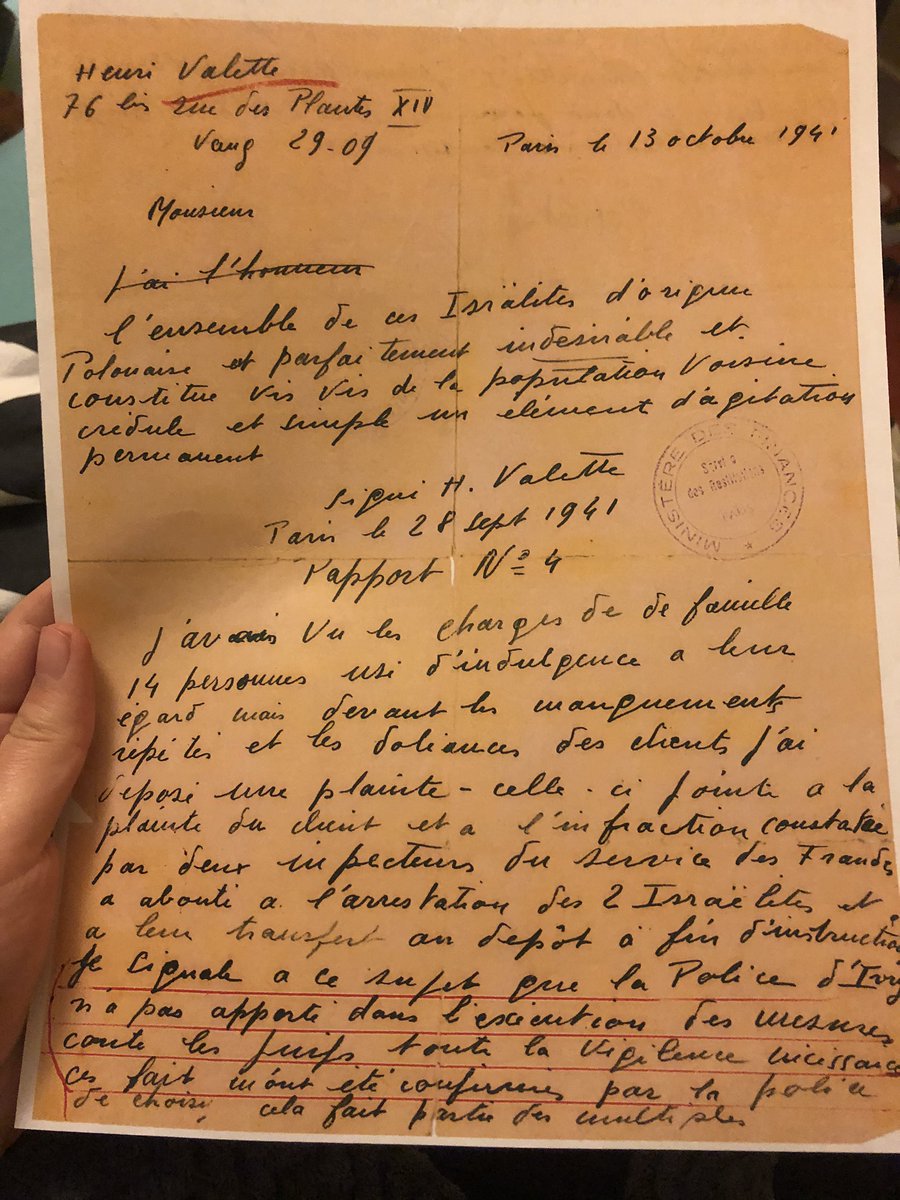 Henri Valette
76 bis rue des Plantes XIV
Vaug 29-09
Paris le 13 octobre 1941
Monsieur
J'ai l'honneur
l'ensemble de ces Israëlites d'origine
Polonaise et parfaitement indesirable et
constitue vis vis de la population Voisine
crédule et simple un élément d'agitation
permanent
signé H. Valette
MINISTÈRE DES FINANCES
Service
des Restitutions
PARIS
Paris le 28 sept 1941
Rapport No 4
J'avais Vu les charges de de famille
14 personnes usé d'indulgence a leur
égard mais devant les manquements
répétés et les doliances des clients J'ai
déposé une plainte - celle-ci jointe a la
plainte du client et a l'infraction constatée
par deux inpecteurs du service des Fraudes
a abouti a l'arrestation des 2 Israëlites et
a leur transfert au depôt à fin d'instruction
Je signale a ce sujet que la Police d'Ivry
n'a pas apporté dans l'exécution des mesures
conte les juifs toute la vigilence nécessaire
ces fait m'ont été confirmé par la police
de choisi, cela fait partie des multiples